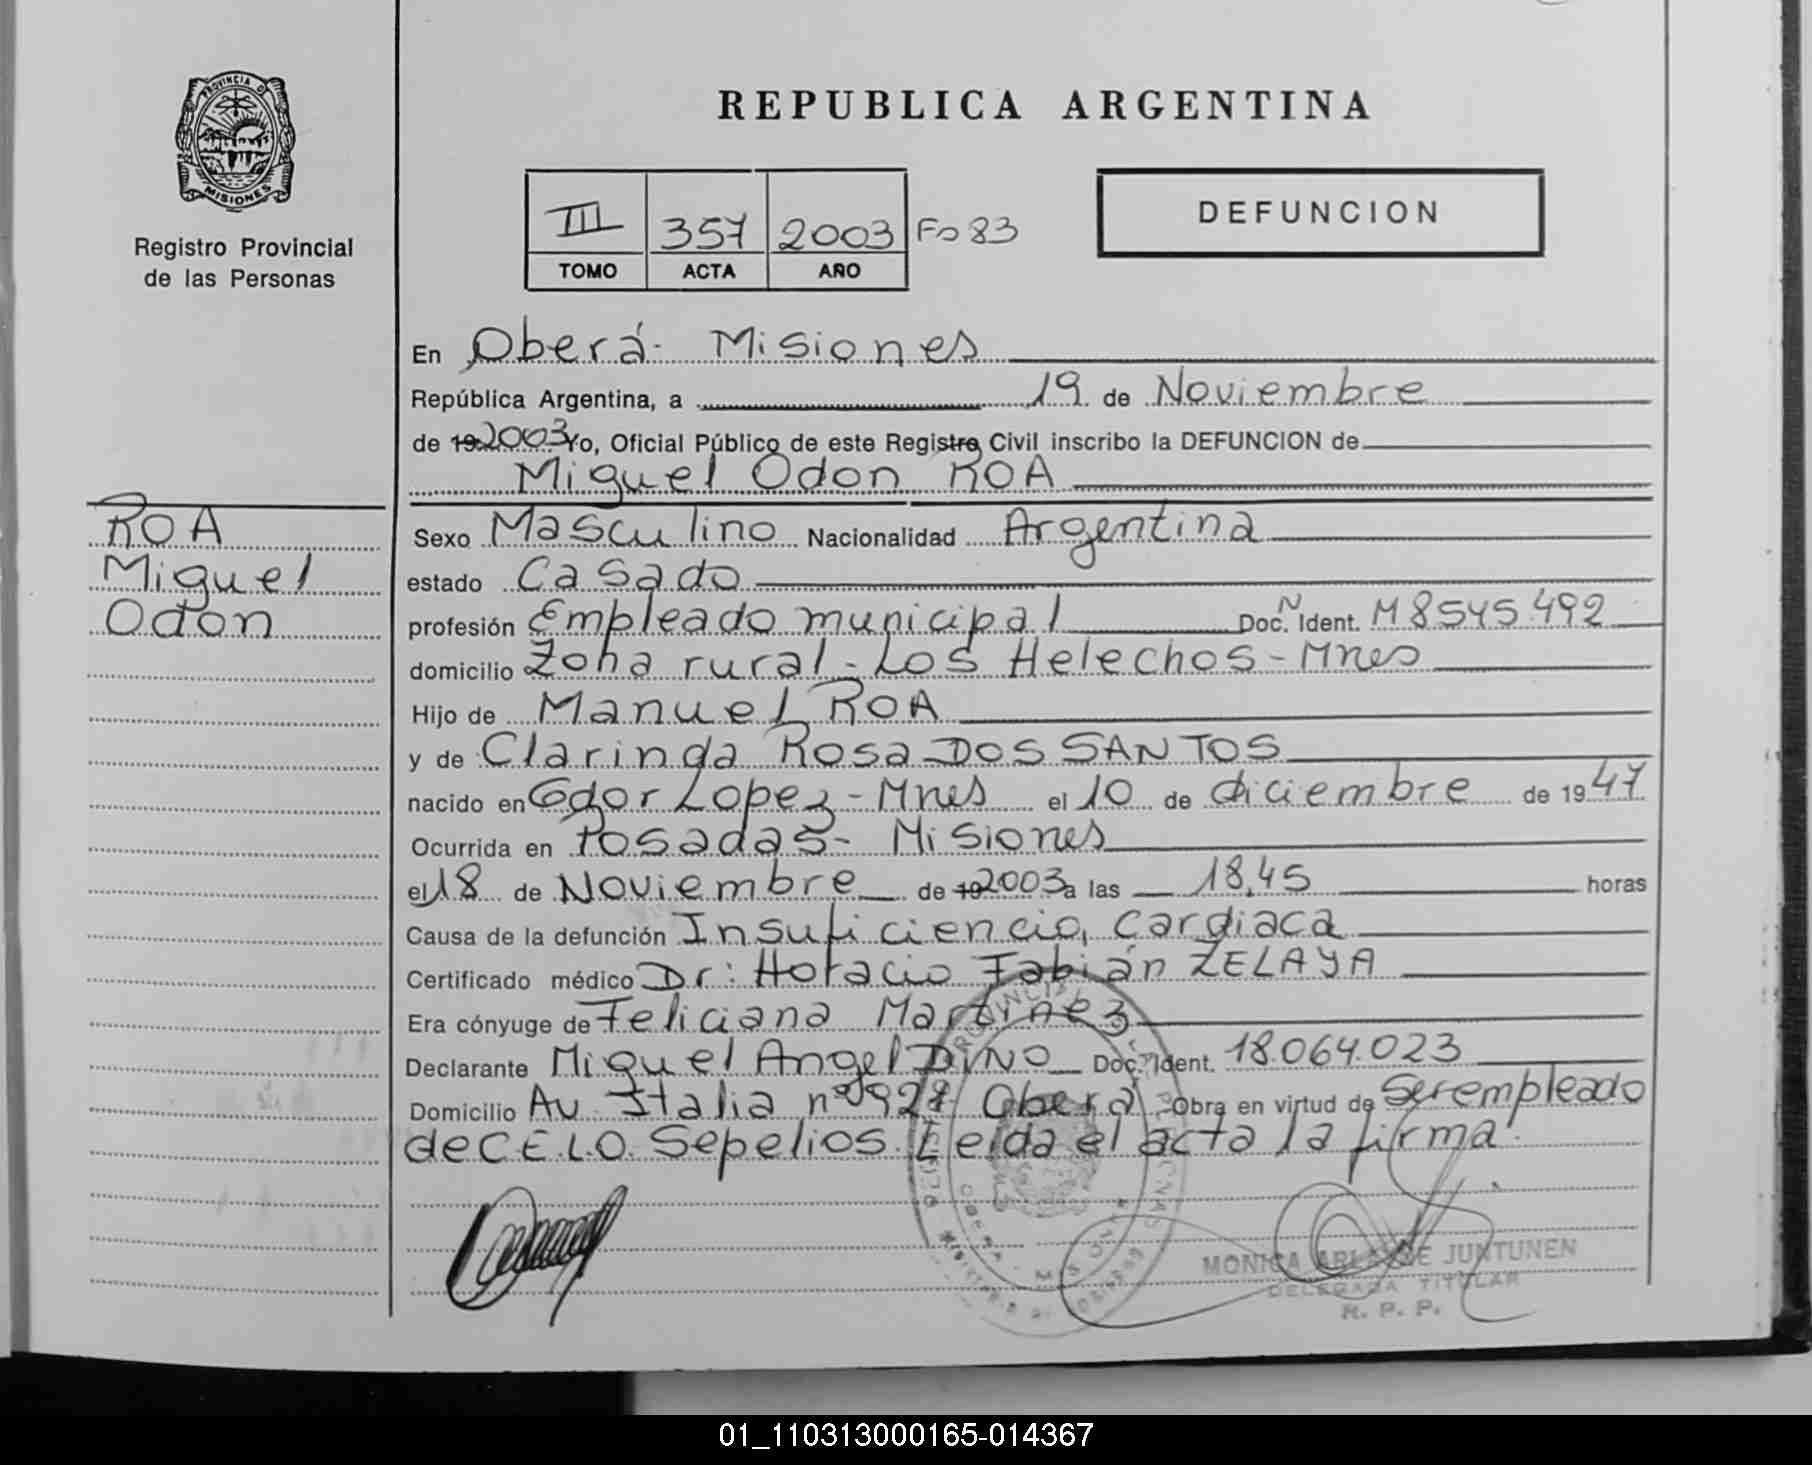 REPUBLICA ARGENTINA
PROVINCIA D
MISIONES
Registro Provincial
de las Personas
III 357 2003 Fo 83
TOMO ACTA AÑO
DEFUNCION
En Oberá - Misiones
República Argentina, a 19 de Noviembre
de 19 2003 Yo, Oficial Público de este Registro Civil inscribo la DEFUNCION de
Miguel Odon ROA
ROA
Miguel
Odon
Sexo Masculino Nacionalidad Argentina
estado Casado
profesión Empleado municipal Doc. N Ident. M 8545.492
domicilio Zona rural - Los Helechos - Mnes
Hijo de Manuel ROA
y de Clarinda Rosa DOS SANTOS
nacido en Gdor Lopez - Mnes el 10 de diciembre de 1947
Ocurrida en Posadas - Misiones
el 18 de Noviembre de 19 2003 a las 18,45 horas
Causa de la defunción Insuficiencia Cardiaca
Certificado médico Dr: Horacio Fabián ZELAYA
Era cónyuge de Feliciana Martinez
Declarante Miguel Angel DINO Doc. Ident. 18.064.023
Domicilio Av. Italia nº 928 Oberá Obra en virtud de Ser empleado
de C.E.L.O. Sepelios. Leida el acta la firma.
MONICA JUNTUNEN
DELEGADA TITULAR
R. P. P.
01_110313000165-014367